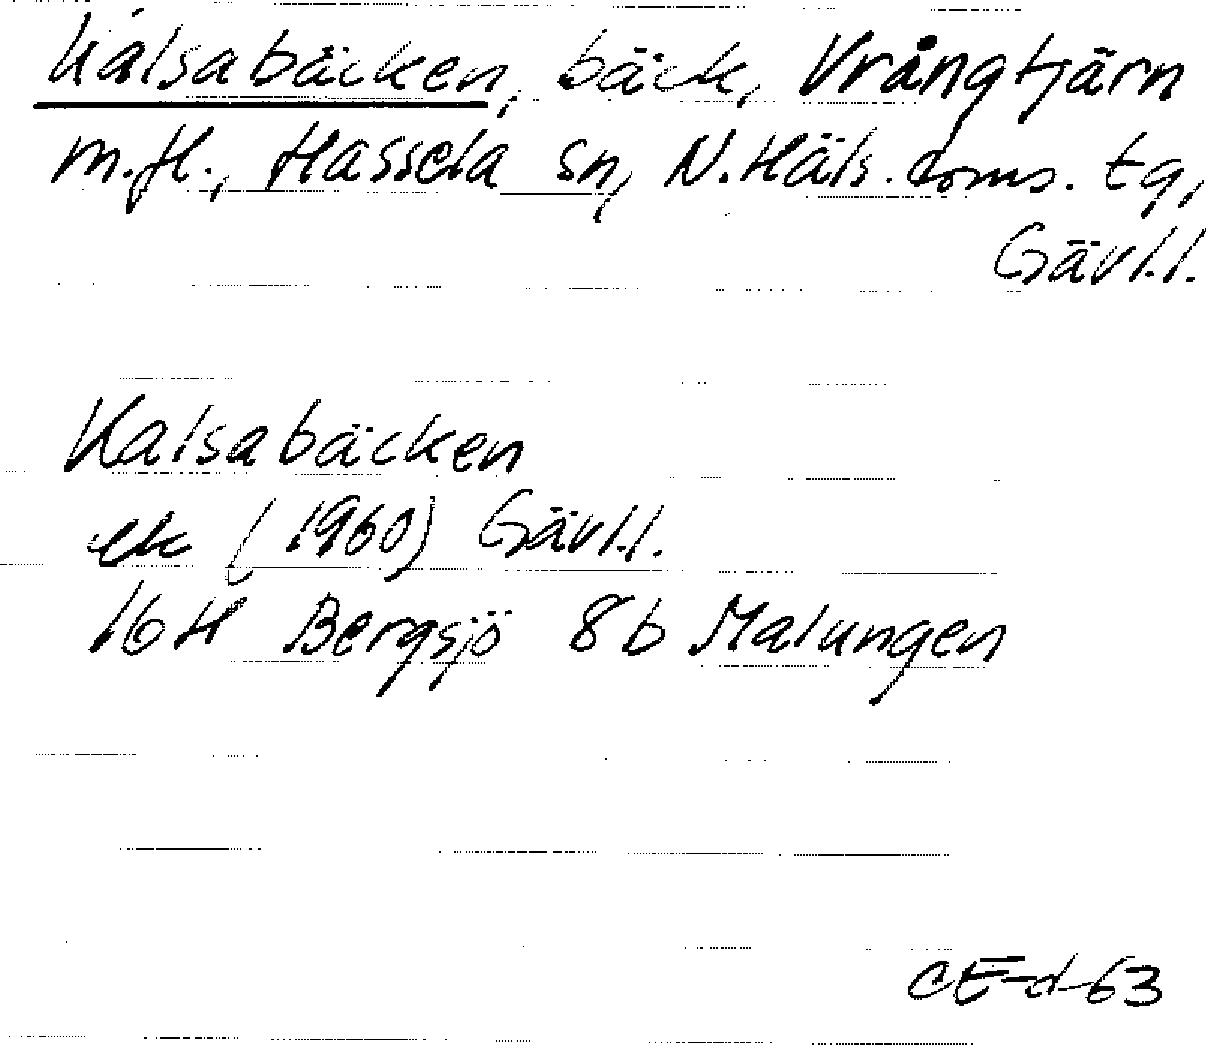 Kalsabäcken, bäck, Vrångtjärn
m.fl., Hassela sn, N.Häls. doms. tg,
Gävl.l.
Kalsabäcken
ek (1960) Gävl.l.
16H Bergsjö 8b Malungen
CE-d-63